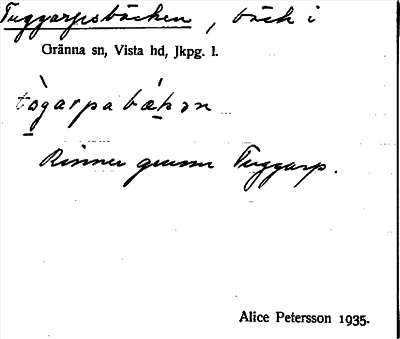 Tuggarpsbäcken, bäck i
Gränna sn, Vista hd, Jkpg. l.
tògarpabák̲ən
Rinner genom Tuggarp.
Alice Petersson 1935.